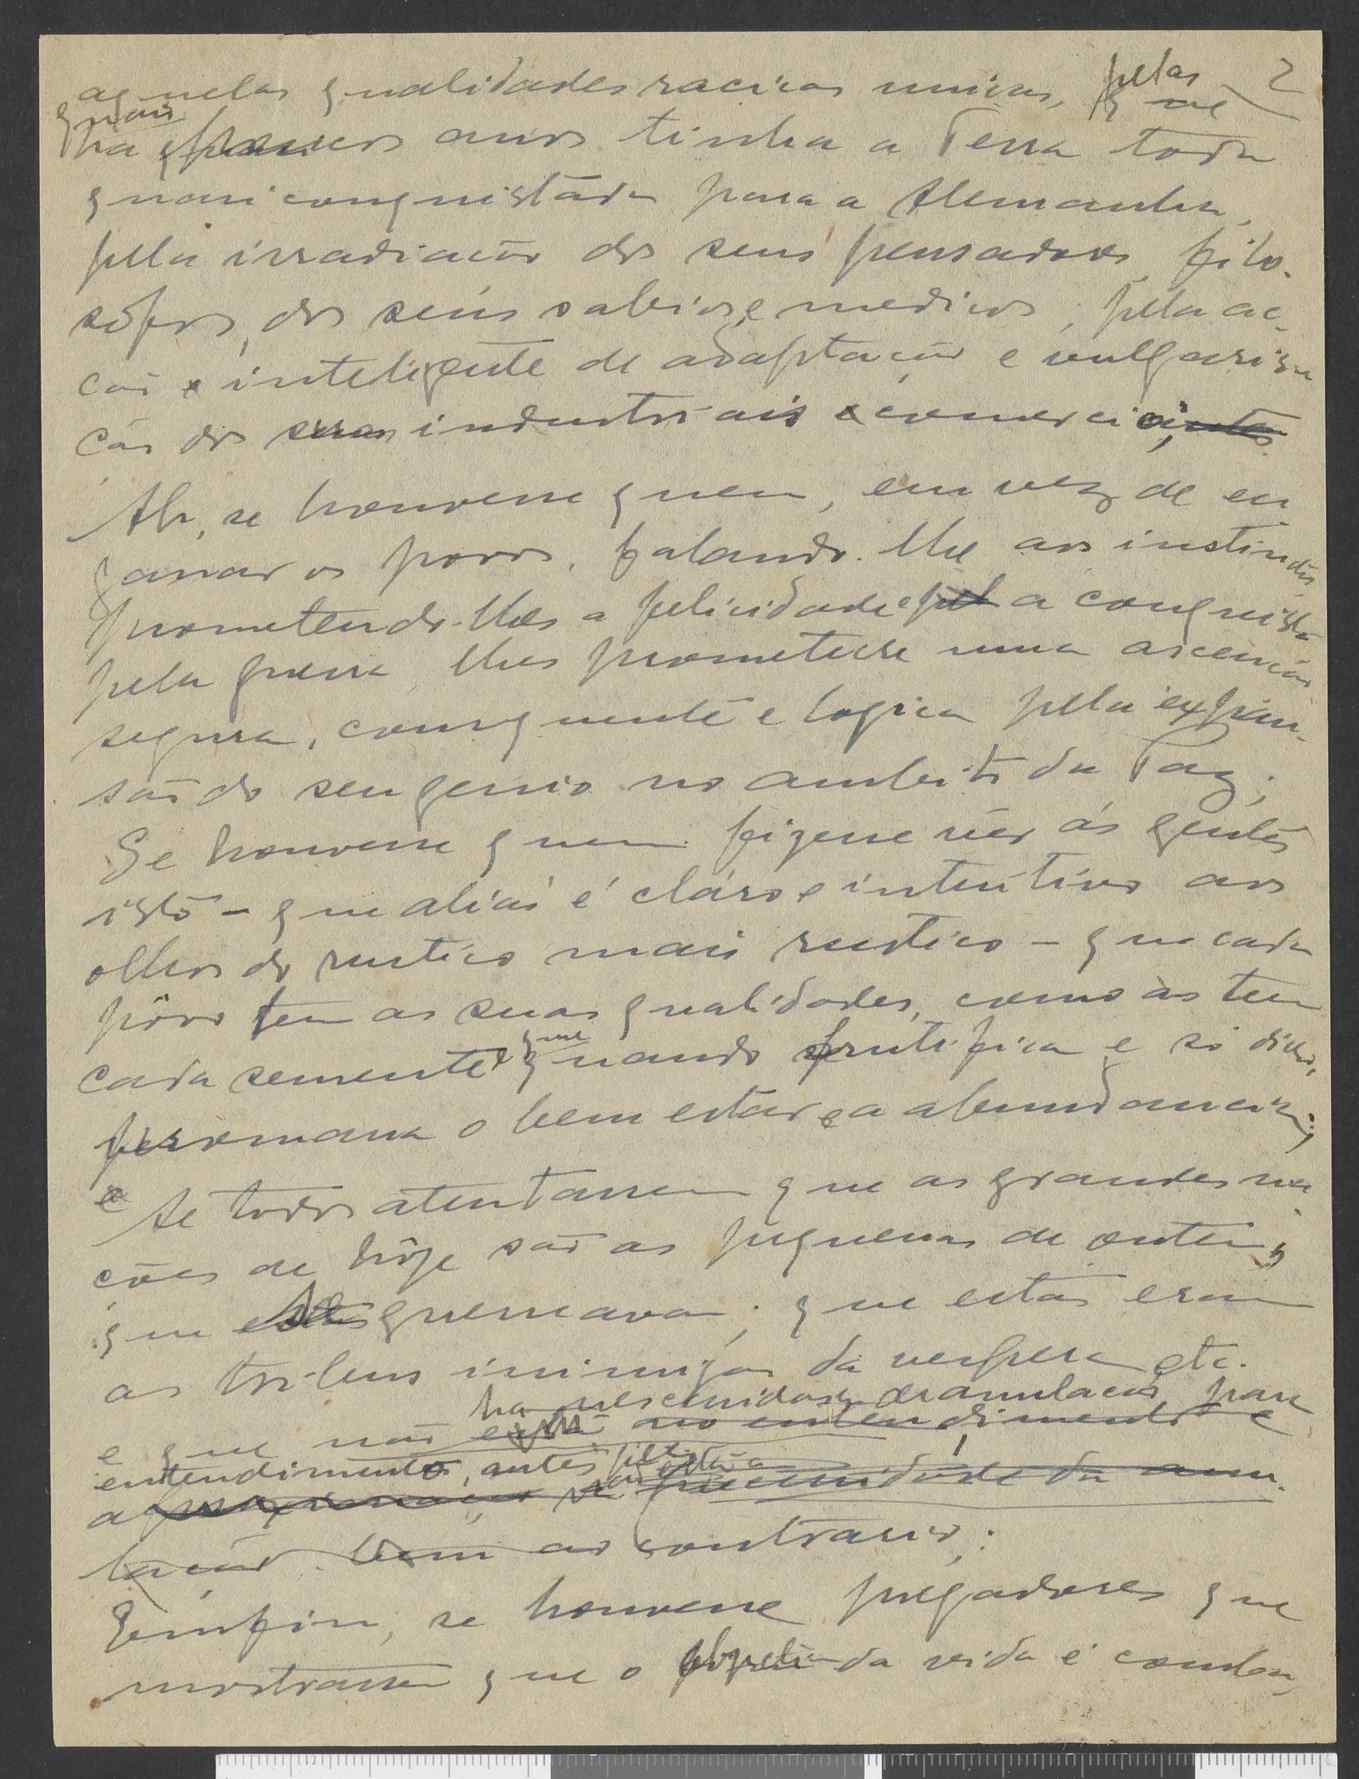 2
aquelas qualidades racicas unicas, pelas
quais
ha poucos anos tinha a Terra toda
quasi conquistada para a Alemanha,
pela irradiação dos seus pensadores, filo-
sófos, dos seus sabios e medicos, pela ac-
ção inteligente de adaptação e vulgarisa
ção dos seus industriais e comerciantes.
Ah, se houvesse quem, em vez de en
ganar os povos, falando-lhe aos instintos
prometendo-lhes a felicidade e a conquista
pela guerra, lhes prometesse uma ascenção
segura, consequente e logica pela expan-
são do seu genio no ambito da Paz;
Se houvesse quem fizesse vêr ás gentes
isto - que aliás é cláro e intuitivo aos
olhos do rustico mais rustico - que cada
pôvo tem as suas qualidades, como as tem
cada semente, que
quando frutifica e só dicha,
o bem estar e a abundancia;
e se todos atentassem que as grandes na
ções de hôje são as pequenas de ontem,
que se guerreavam; que estas eram
as tribus inimigas da vespera, etc.
ha necessidade de anulação para
e que não está no entendimento e
entendimento, antes pelo
a necessidade da anu-
lação. bem ao contrario;
Emfim, se houvesse pregadores que
mostrassem que o objectivo da vida é